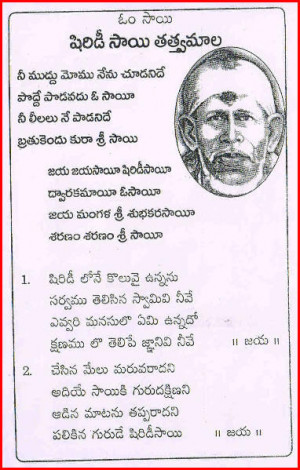 ఓం సాయి
షిరిడీ సాయి తత్వమాల
నీ ముద్దు మోము నేను చూడనిదే
పొద్దే పొడవదు ఓ సాయీ
నీ లీలలు నే పాడనిదే
బ్రతుకెందు కురా శ్రీ సాయి
జయ జయసాయీ షిరిడీసాయీ
ద్వారకమాయీ ఓసాయీ
జయ మంగళ శ్రీ శుభకరసాయీ
శరణం శరణం శ్రీ సాయీ
1. షిరిడీ లోనే కొలువై ఉన్నను
సర్వము తెలిసిన స్వామివి నీవే
ఎవ్వరి మనసులొ ఏమి ఉన్నదో
క్షణము లొ తెలిపే జ్ఞానివి నీవే ॥ జయ ॥
2. చేసిన మేలు మరువరాదని
అదియే సాయికి గురుదక్షిణని
ఆడిన మాటను తప్పరాదని
పలికిన గురుడే షిరిడీసాయి ॥ జయ ॥